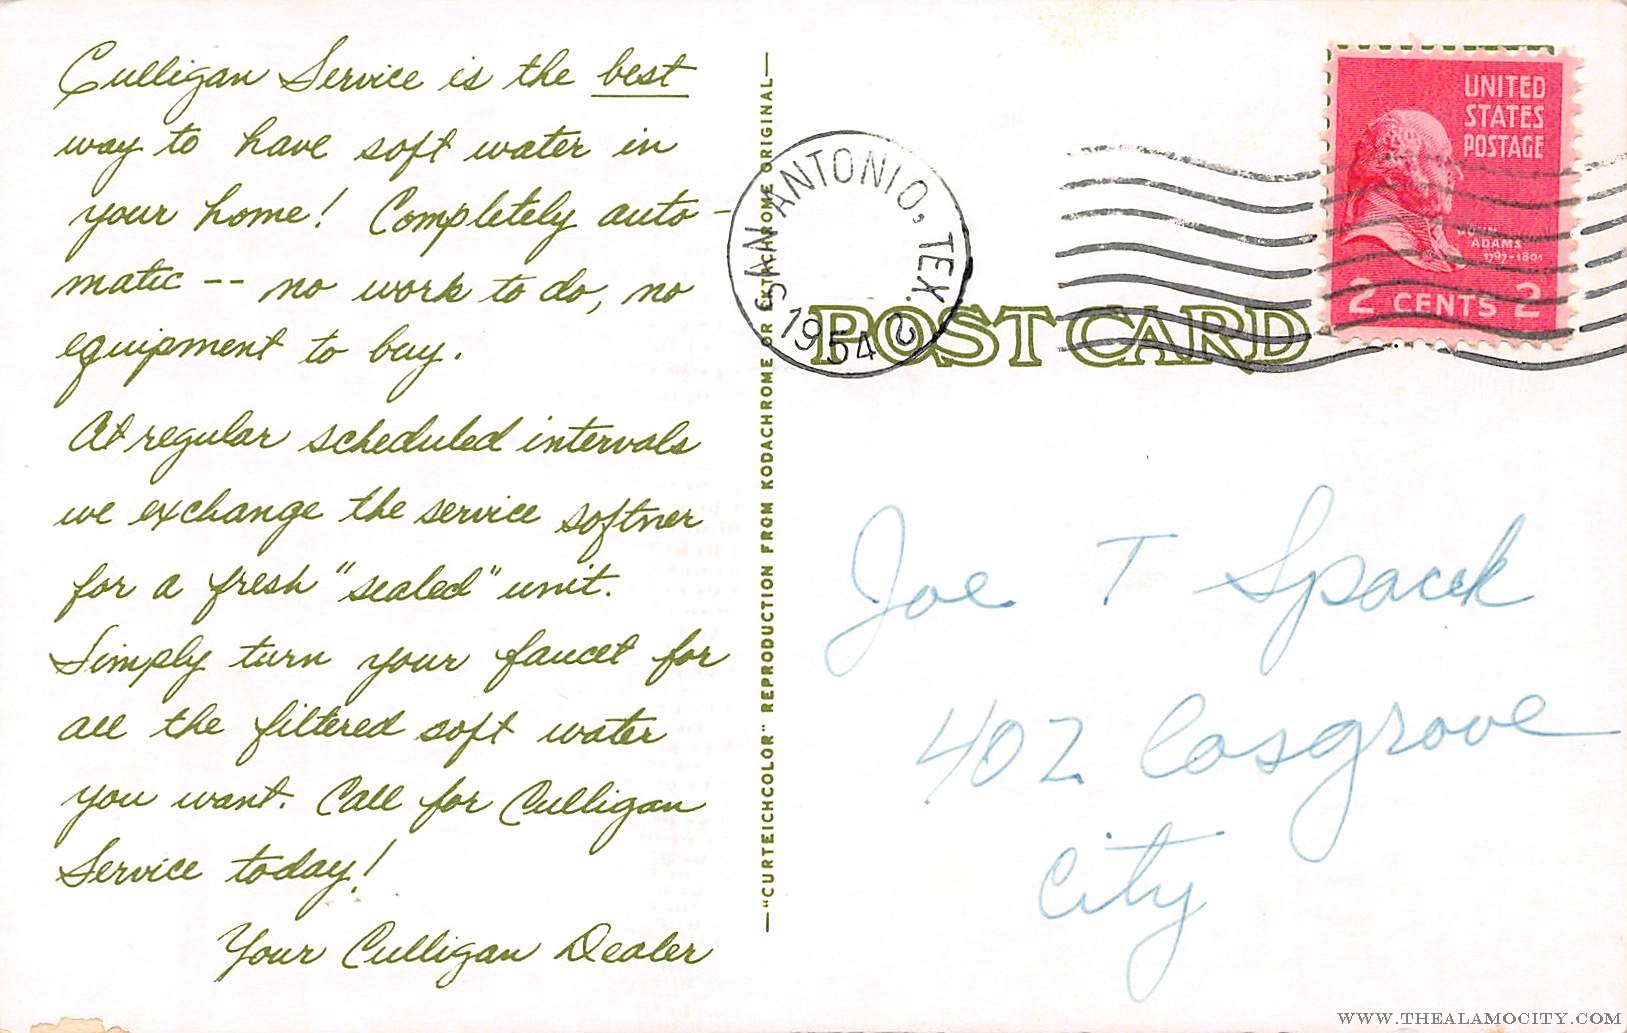 Culligan Service is the best
way to have soft water in
your home! Completely auto-
matic -- no work to do, no
equipment to buy.
At regular scheduled intervals
we exchange the service softner
for a fresh "sealed" unit.
Simply turn your faucet for
all the filtered soft water
you want. Call for Culligan
Service today!
Your Culligan Dealer
—"CURTEICHCOLOR" REPRODUCTION FROM KODACHROME OR EKTACHROME ORIGINAL—
SAN ANTONIO, TEX. 2
1954
POST CARD
UNITED
STATES
POSTAGE
JOHN
ADAMS
1797-1801
2 CENTS 2
Joe T Spacek
402 Cosgrove
City
WWW.THEALAMOCITY.COM